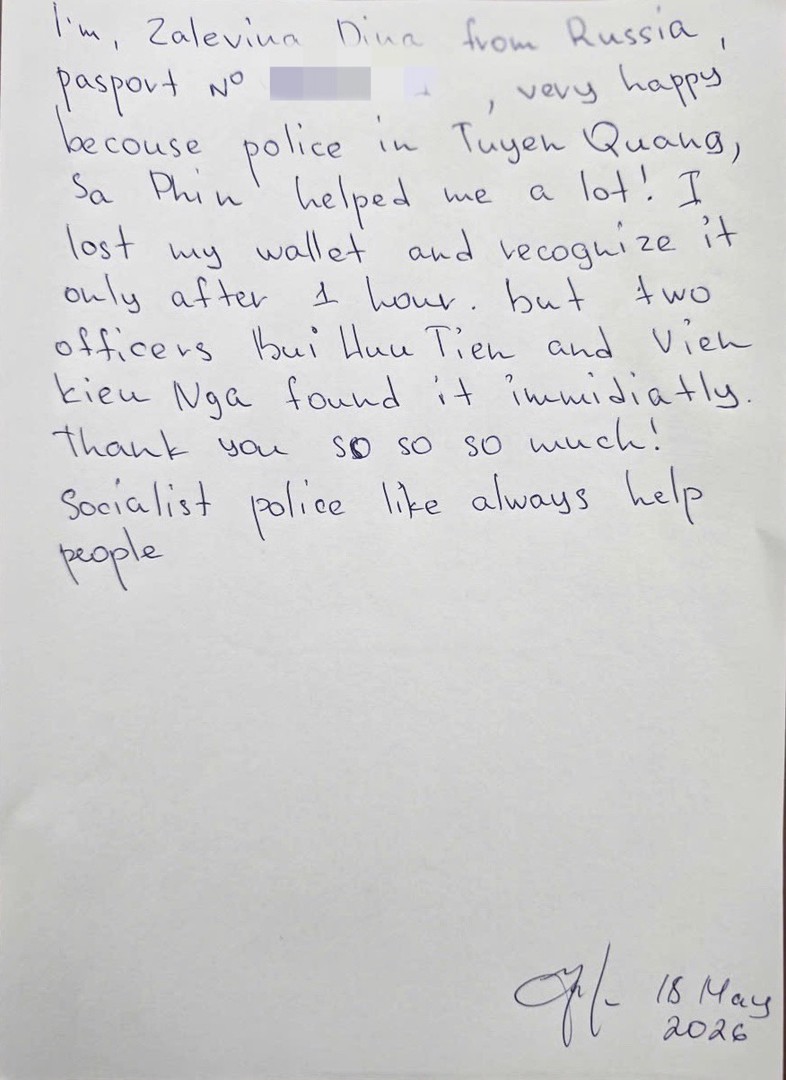 I'm, Zalevina Dina from Russia,
pasport № , very happy
becouse police in Tuyen Quang,
Sa Phin helped me a lot! I
lost my wallet and recognize it
only after 1 hour. but two
officers Bui Huu Tien and Vien
kieu Nga found it immidiatly.
thank you so so so much!
Socialist police like always help
people
18 May
2026